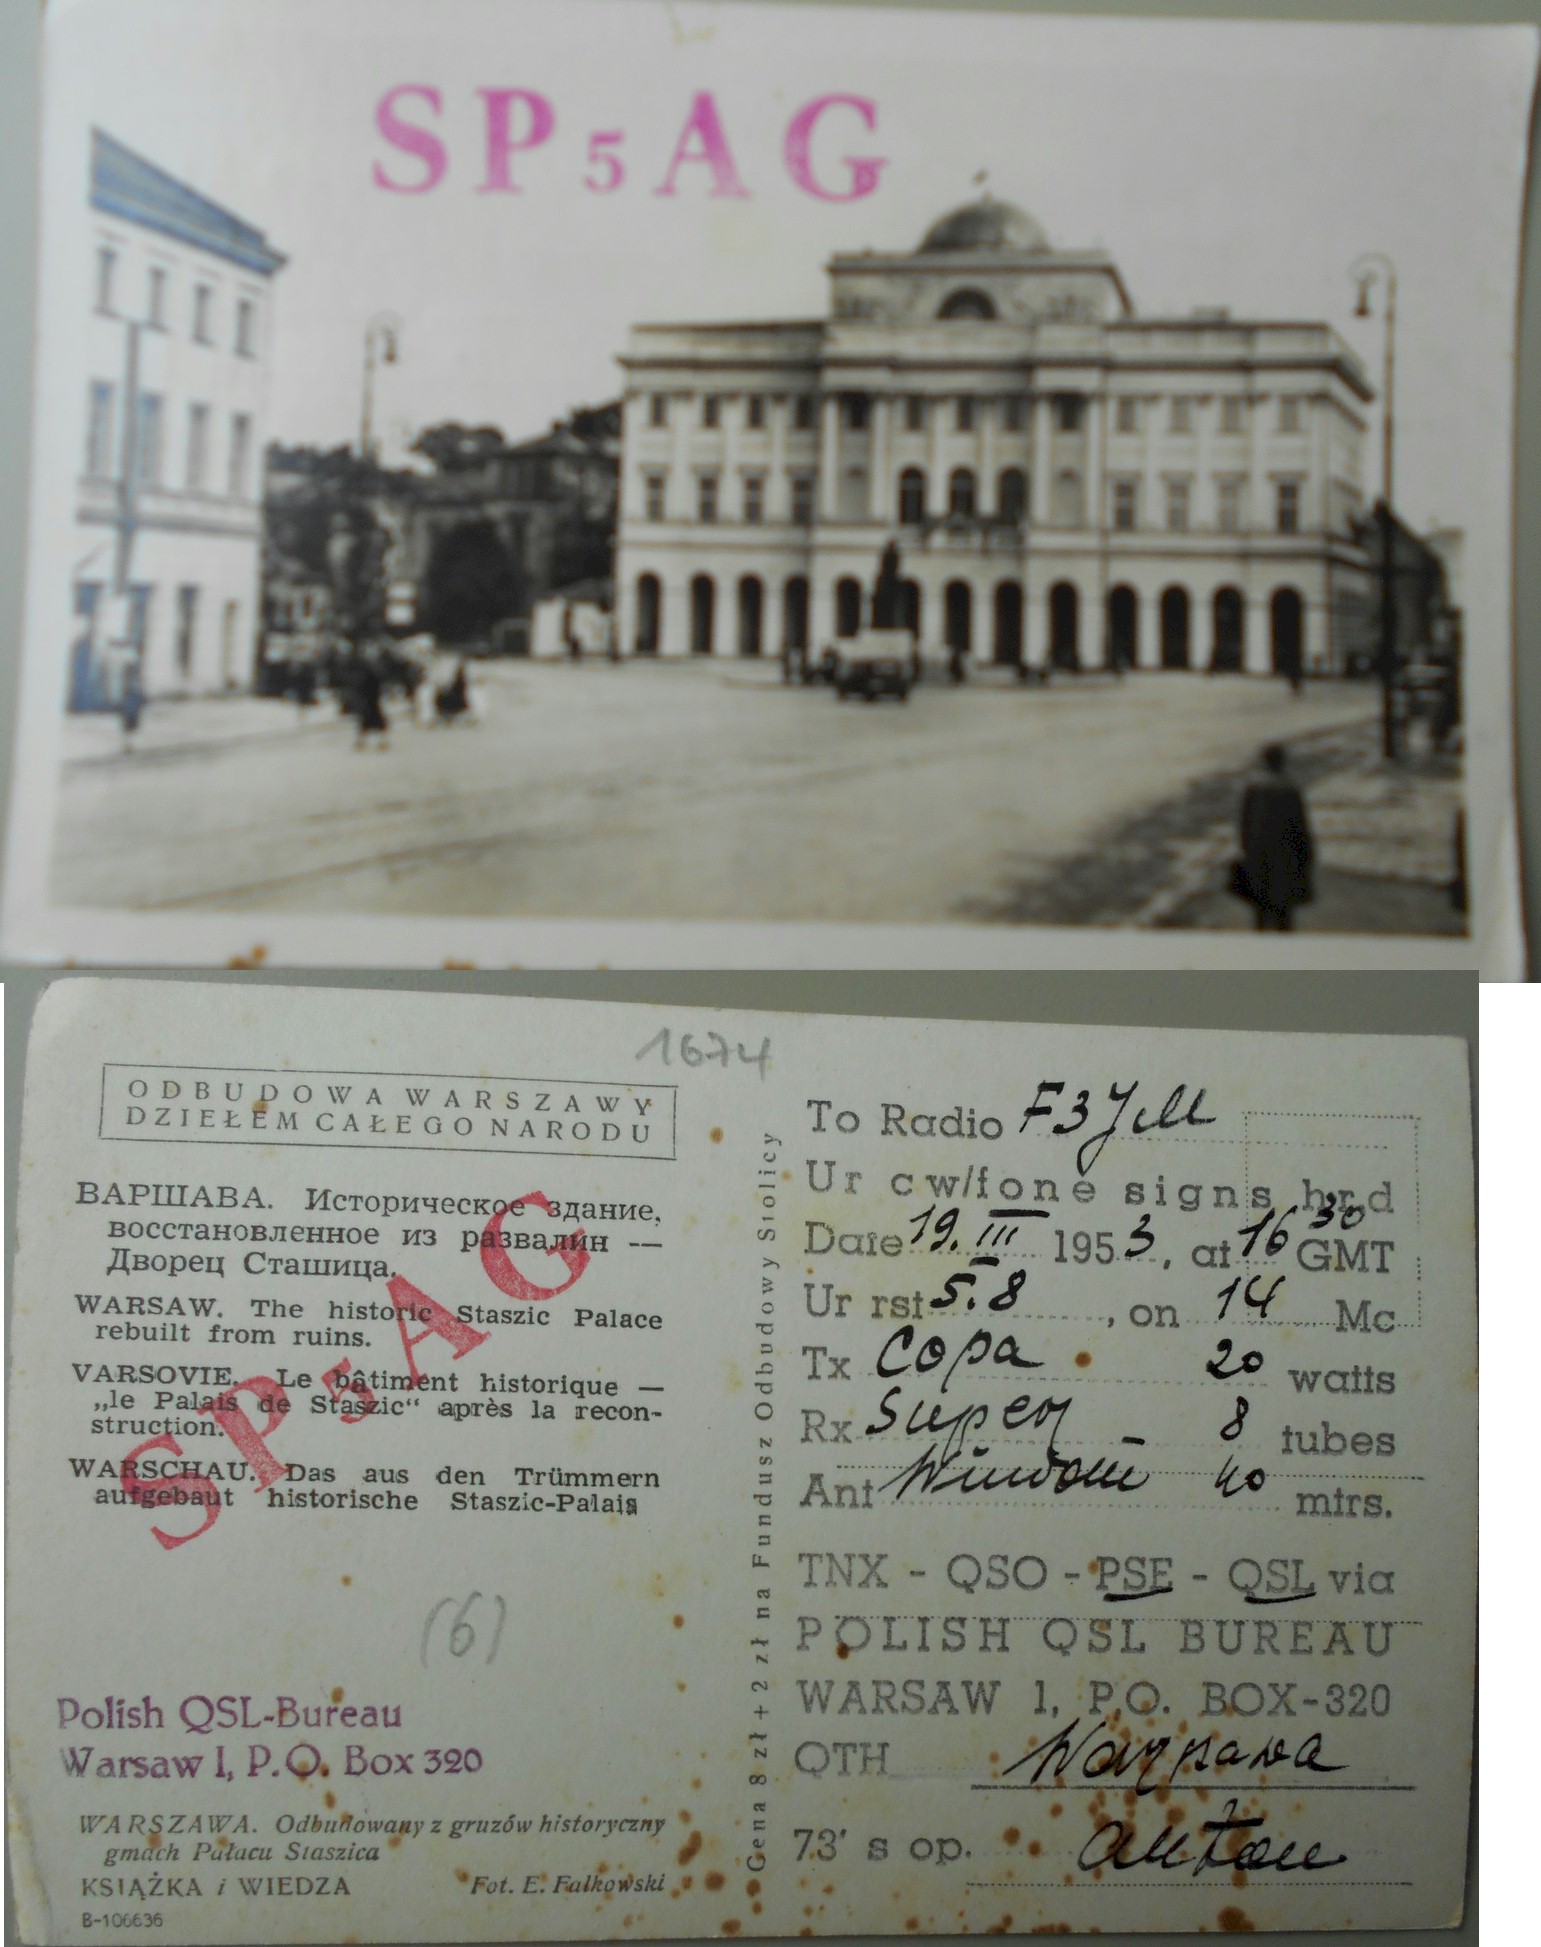 SP5AG
1674
ODBUDOWA WARSZAWY
DZIEŁEM CAŁEGO NARODU
ВАРШАВА. Историческое здание,
восстановленное из развалин —
Дворец Сташица.
WARSAW. The historic Staszic Palace
rebuilt from ruins.
VARSOVIE. Le bâtiment historique —
„le Palais de Staszic“ après la recon-
struction.
WARSCHAU. Das aus den Trümmern
aufgebaut historische Staszic-Palais
SP5AG
(6)
Polish QSL-Bureau
Warsaw I, P.O. Box 320
WARSZAWA. Odbudowany z gruzów historyczny
gmach Pałacu Staszica
KSIĄŻKA i WIEDZA Fot. E. Falkowski
B-106636
Cena 8 zł + 2 zł na Fundusz Odbudowy Stolicy
To Radio F3JM
Ur cw/fone signs hrd
Date 19. III 1953, at 16 30 GMT
Ur rst 5.8, on 14 Mc
Tx Copa 20 watts
Rx Super - 8 tubes
Ant Windom 40 mtrs.
TNX - QSO - PSE - QSL via
POLISH QSL BUREAU
WARSAW 1, P.O. BOX-320
QTH Warszawa
73' s op. Anton